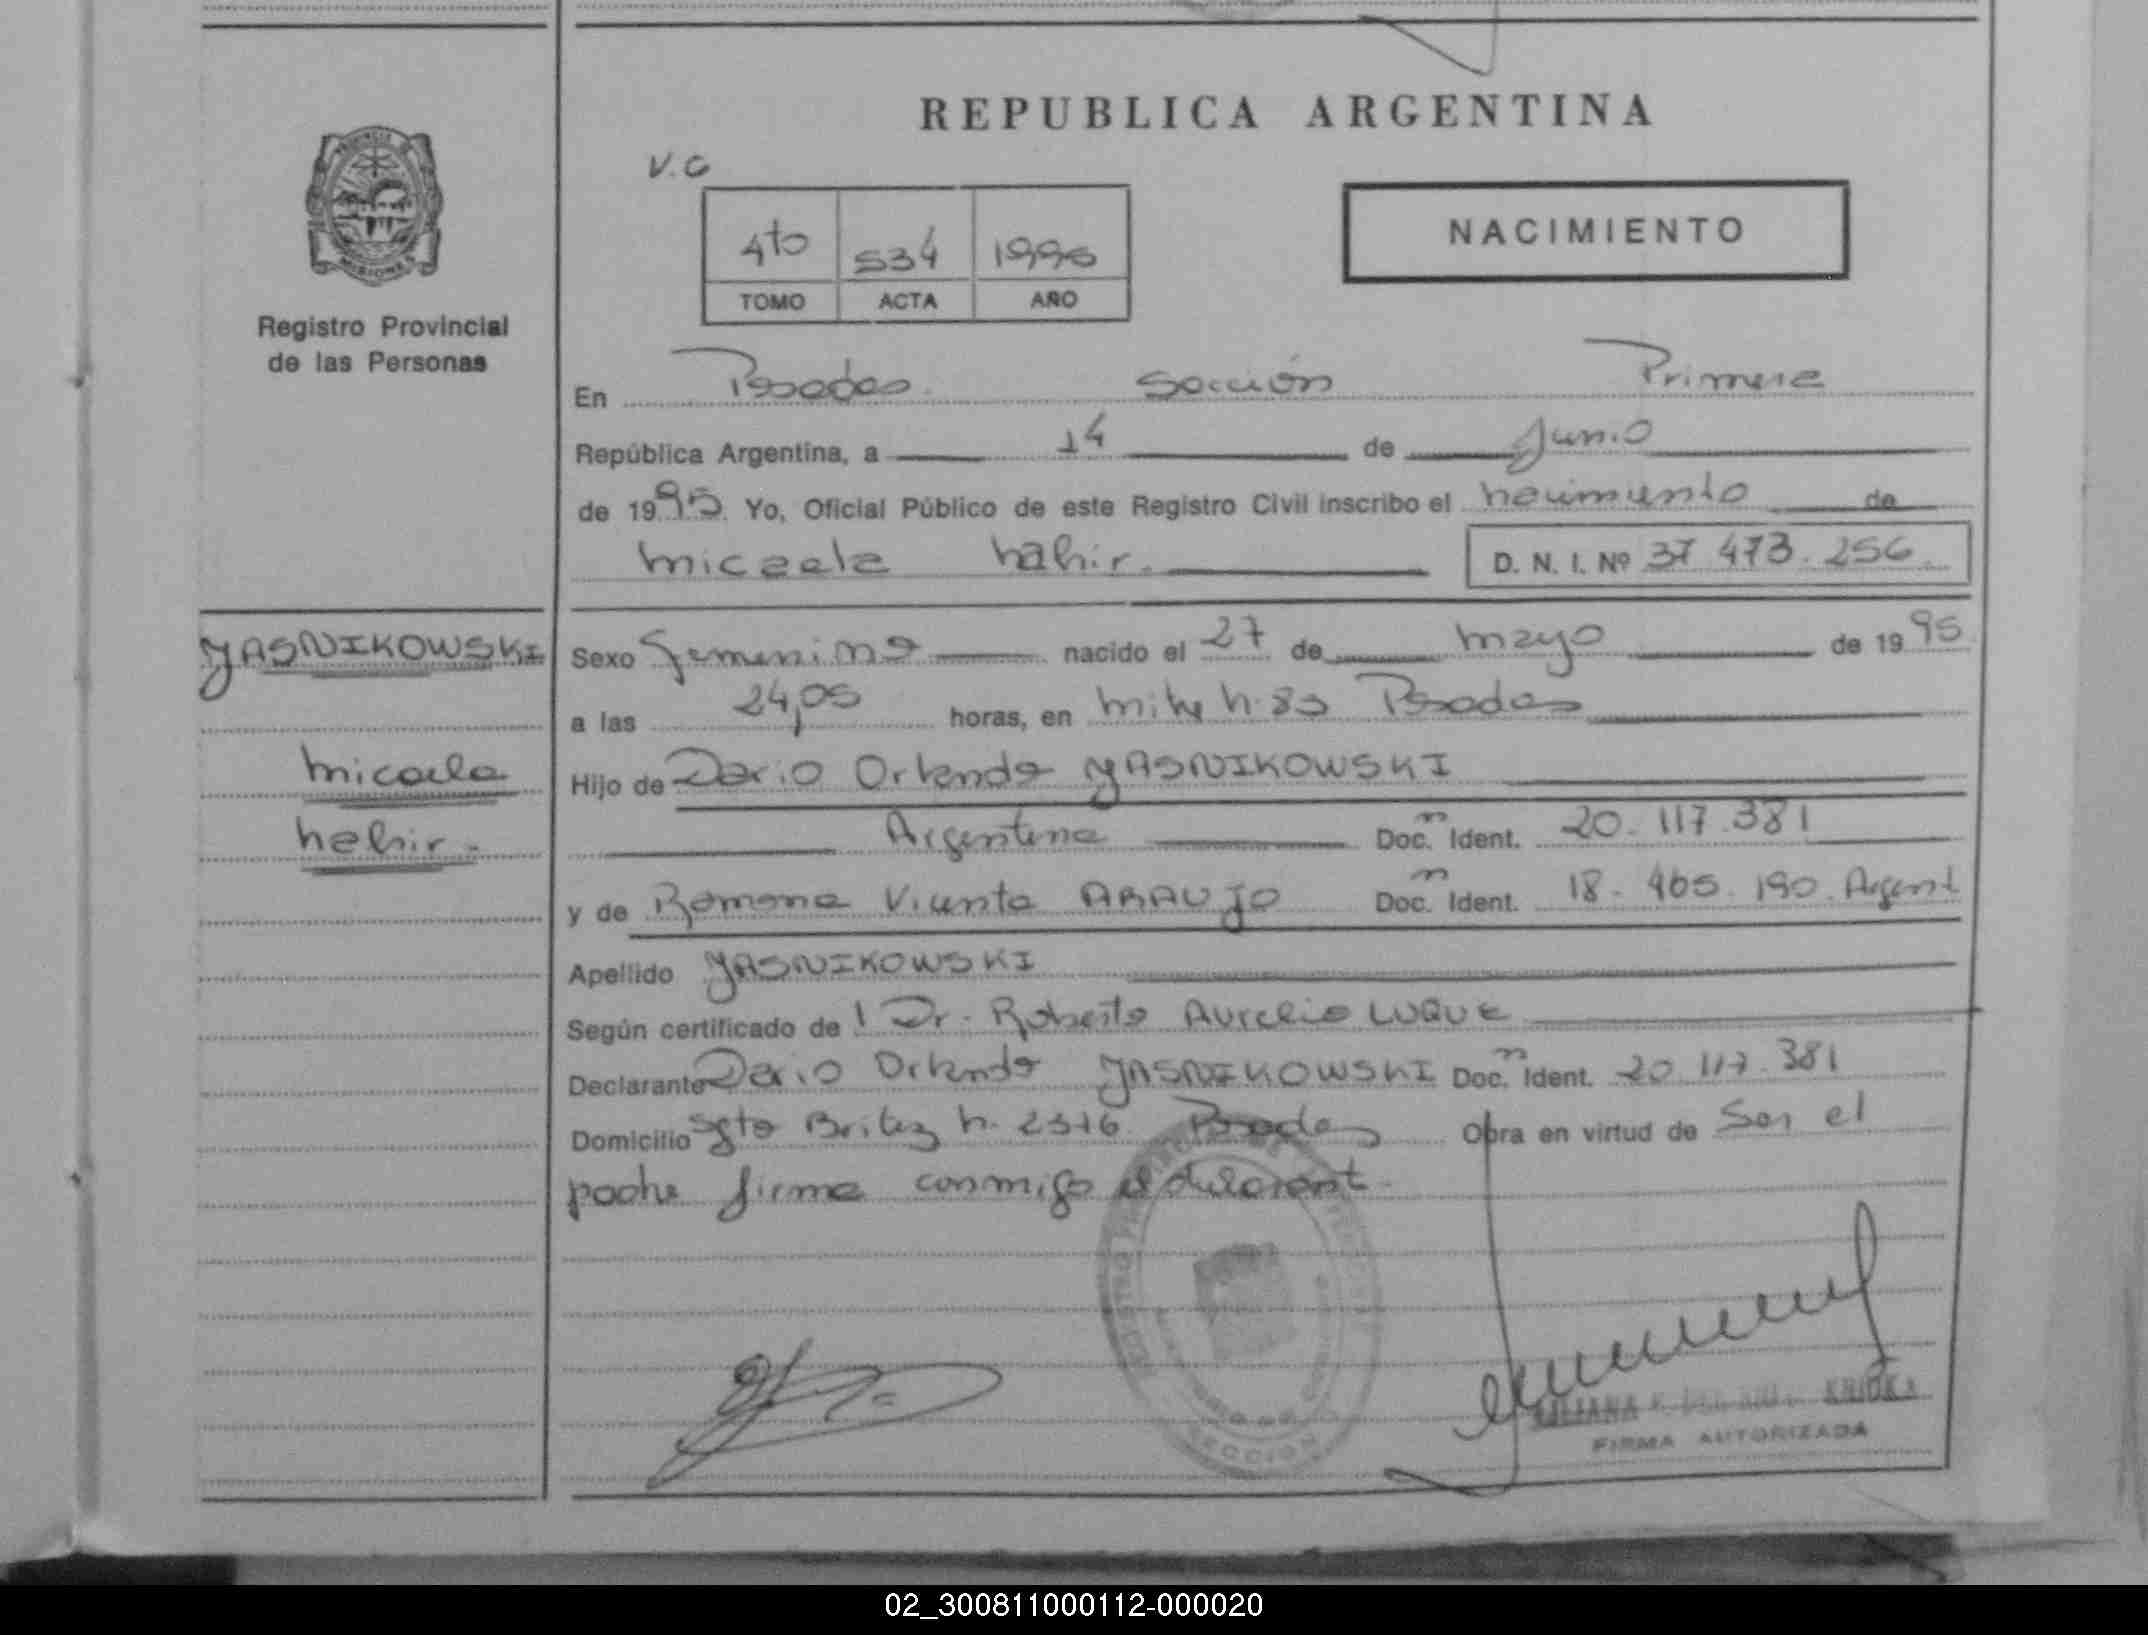 REPUBLICA ARGENTINA
V.C
NACIMIENTO
4to 534 1995
TOMO ACTA AÑO
MISIONES
Registro Provincial
de las Personas
En Posadas Sección Primera
República Argentina, a 14 de Junio
de 1995 Yo, Oficial Público de este Registro Civil inscribo el nacimiento de
Micaela Nahir. D. N. I. Nº 37 473.256
YASNIKOWSKI
Micaela
Nahir.-
Sexo Femenino nacido el 27 de Mayo de 1995
a las 24,05 horas, en Mitre N. 83 Posadas
Hijo de Dario Orlando YASNIKOWSKI
Argentina Doc. Ident. 20.117.381
y de Ramona Vicenta ARAUJO Doc. Ident. 18.465.190. Argent
Apellido YASNIKOWSKI
Según certificado de l Dr. Roberto Aurelio LUQUE
Declarante Dario Orlando YASNIKOWSKI Doc. Ident. 20 117.381
Domicilio Sgto Britez N. 2376 Posadas Obra en virtud de Ser el
padre firma conmigo el declarant.
SECCION
FIRMA AUTORIZADA
02_300811000112-000020